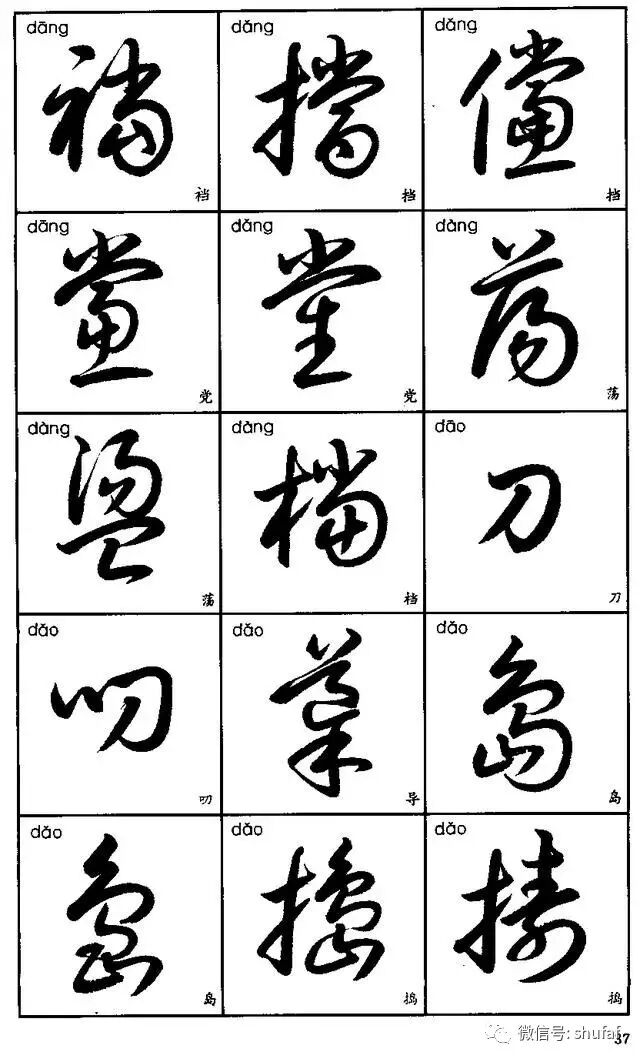 dāng dǎng dǎng
襠 擋 儻
裆 挡 挡
dǎng dǎng dàng
黨 黨 蕩
党 党 荡
dàng dàng dāo
盪 檔 刀
荡 档 刀
dāo dǎo dǎo
叨 導 島
叨 导 岛
dǎo dǎo dǎo
島 搗 擣
岛 捣 捣
微信号: shufaf
37